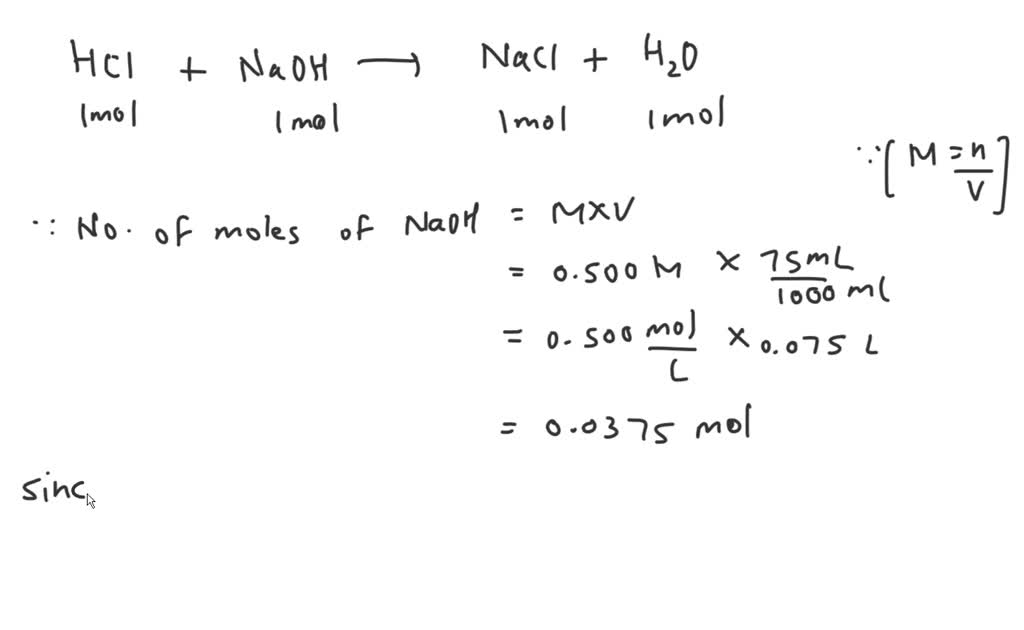 HCl + NaOH → NaCl + H₂O
1mol 1mol 1mol 1mol
∵ [M = n/V]
∵ No. of moles of NaOH = M×V
= 0.500 M × 75mL/1000 mL
= 0.500 mol/L × 0.075 L
= 0.0375 mol
sinc